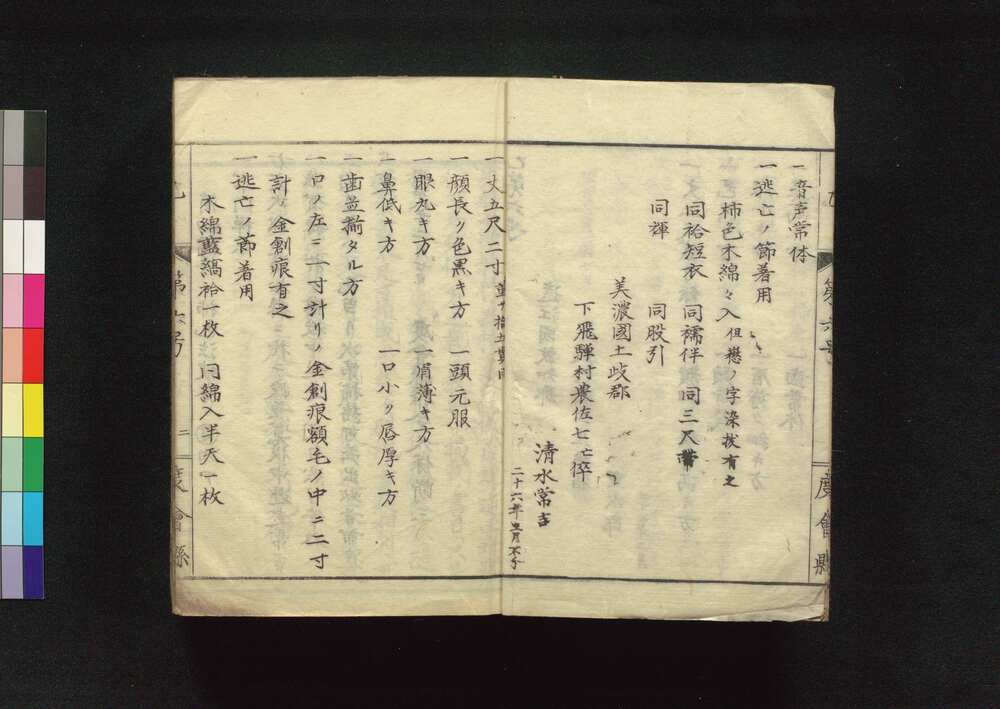 一音声常体
一逃亡ノ節着用
柿色木綿々入 但懋ノ字染抜有之
同袷短衣 同襦伴 同三尺帯
同褌 同股引
美濃國土岐郡
下飛騨村農佐七亡倅
清水常吉
二十六年 生月不分
一丈五尺二寸
一顔長ク色黒キ方 一頭元服
一眼丸キ方 一眉薄キ方
一鼻低キ方 一口小ク唇厚キ方
一歯並揃タル方
一口ノ左ニ一寸計リノ金創痕額毛ノ中ニ二寸
計ノ金創痕有之
一逃亡ノ節着用
木綿藍縞袷一枚 同綿入半天一枚
第六号
二
度會縣